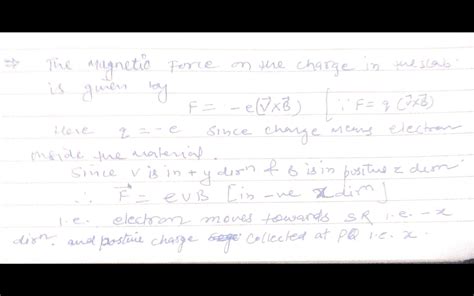 ⇒ The Magnetic Force on the charge in the slab
is given by
F = -e(V⃗×B⃗) [∵ F = q(V⃗×B⃗)
Here q = -e Since charge means electron
inside the material.
Since V is in +y dirn & B is in positive z dirn
∴ F⃗ = eVB [in -ve x dirn]
i.e. electron moves towards SR i.e. -x
dirn. and positive charge collected at PQ i.e. x.